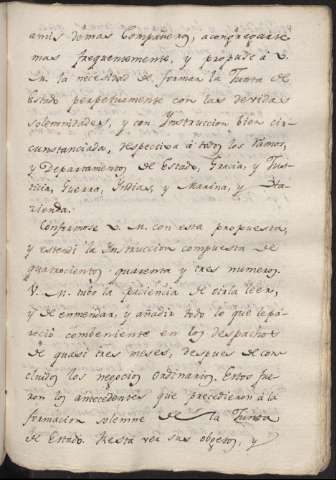 a mis demas Compañeros, a congregarse
mas frequentemente, y propuse á V.
M. la necesidad de formar la Junta de
Estado perpetuamente con las devidas
solemnidades, y con Instruccion bien cir-
cunstanciada, respectiva á todos los Ramos,
y Departamentos de Estado, Gracia, y Jus-
ticia, Guerra, Indias, y Marina, y Ha-
cienda.
Conformose V. M. con esta propuesta,
y estendi la Instruccion compuesta de
quatrocientos quarenta y tres numeros.
V. M. tubo la paciencia de oirla leer,
y de enmendar, y añadir todo lo que le pa-
reció combeniente en los despachos
de quasi tres meses, despues de con-
cluidos los negocios ordinarios. Estos fue-
ron los antecedentes que precedieron á la
formacion solemne de la Junta
de Estado. Resta ver sus objetos, y